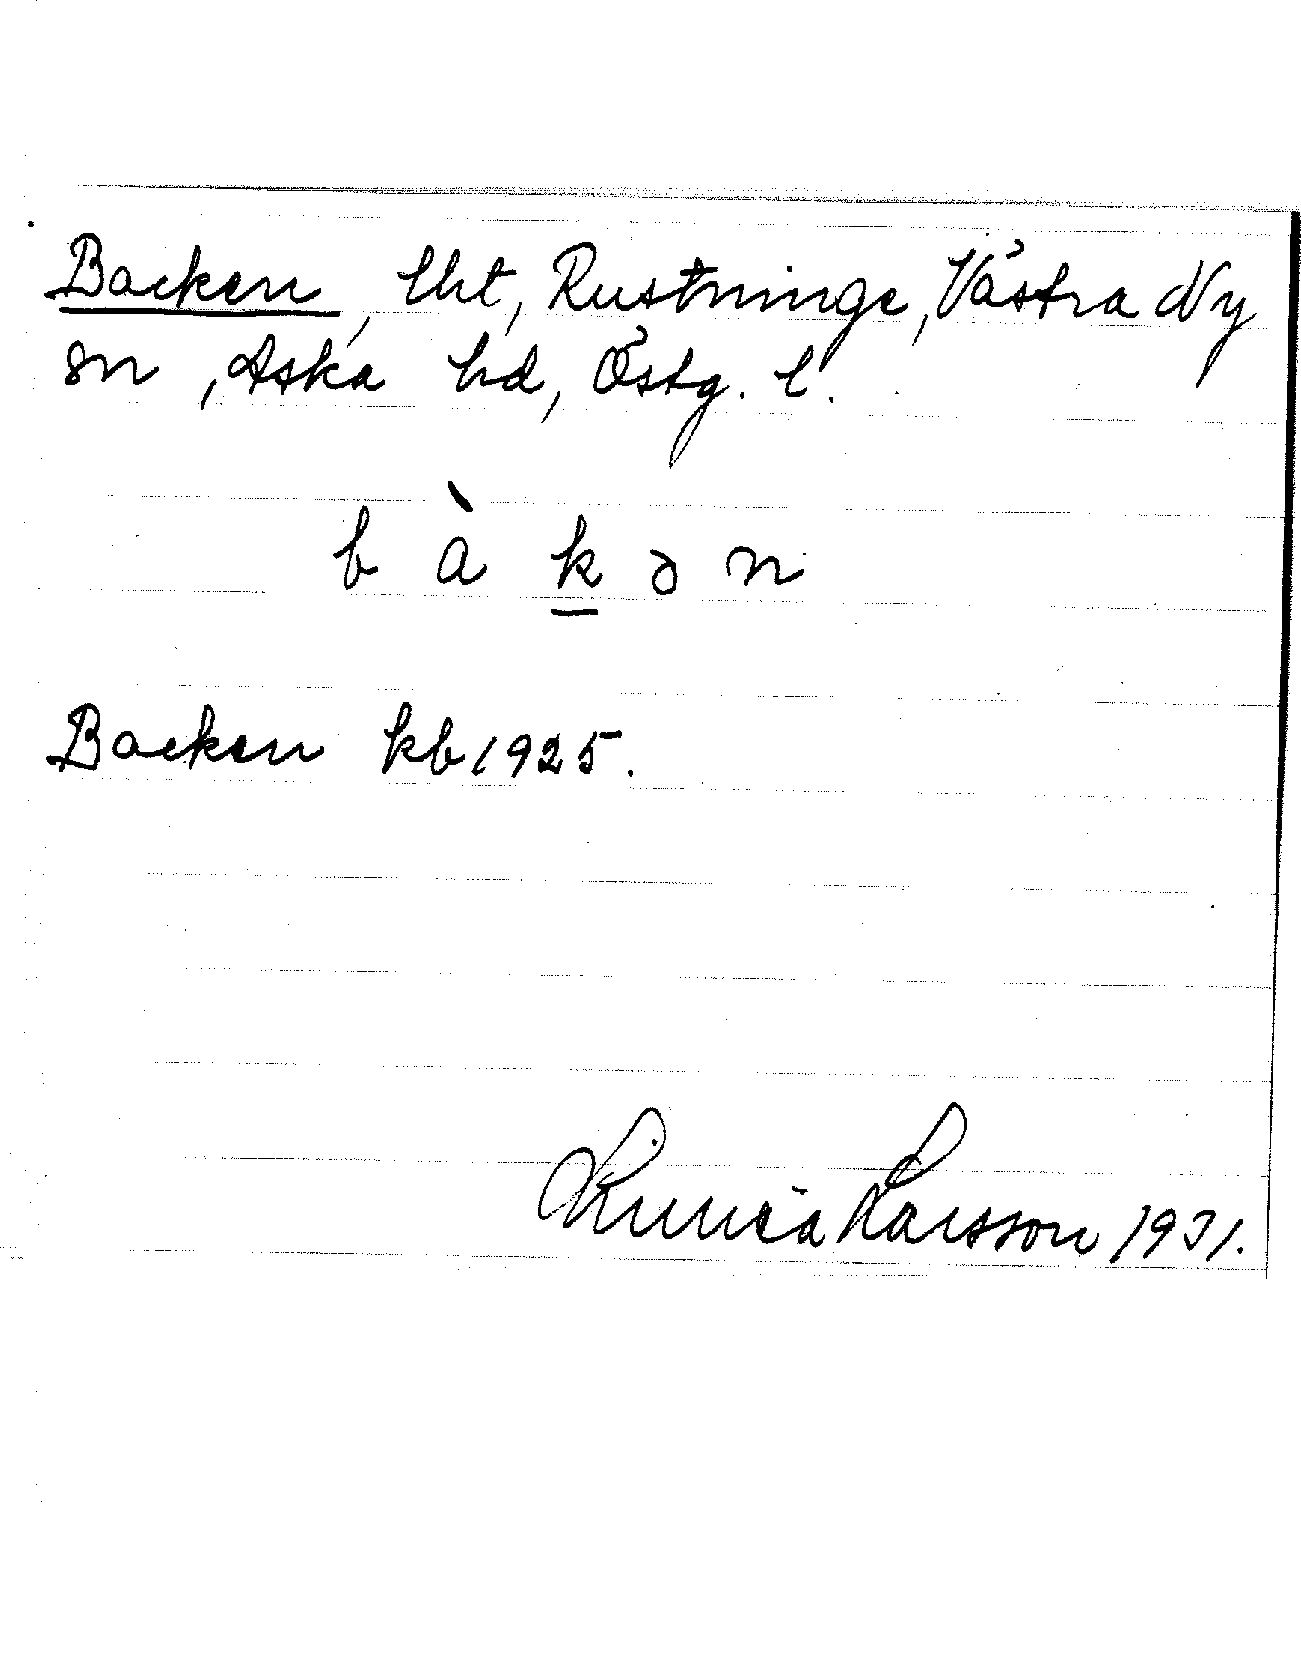 Backen, lht, Rustninge, Västra Ny
sn, Aska hd, Östg. l.
b à k ə n
Backen kb 1925.
Linnéa Larsson 1931.